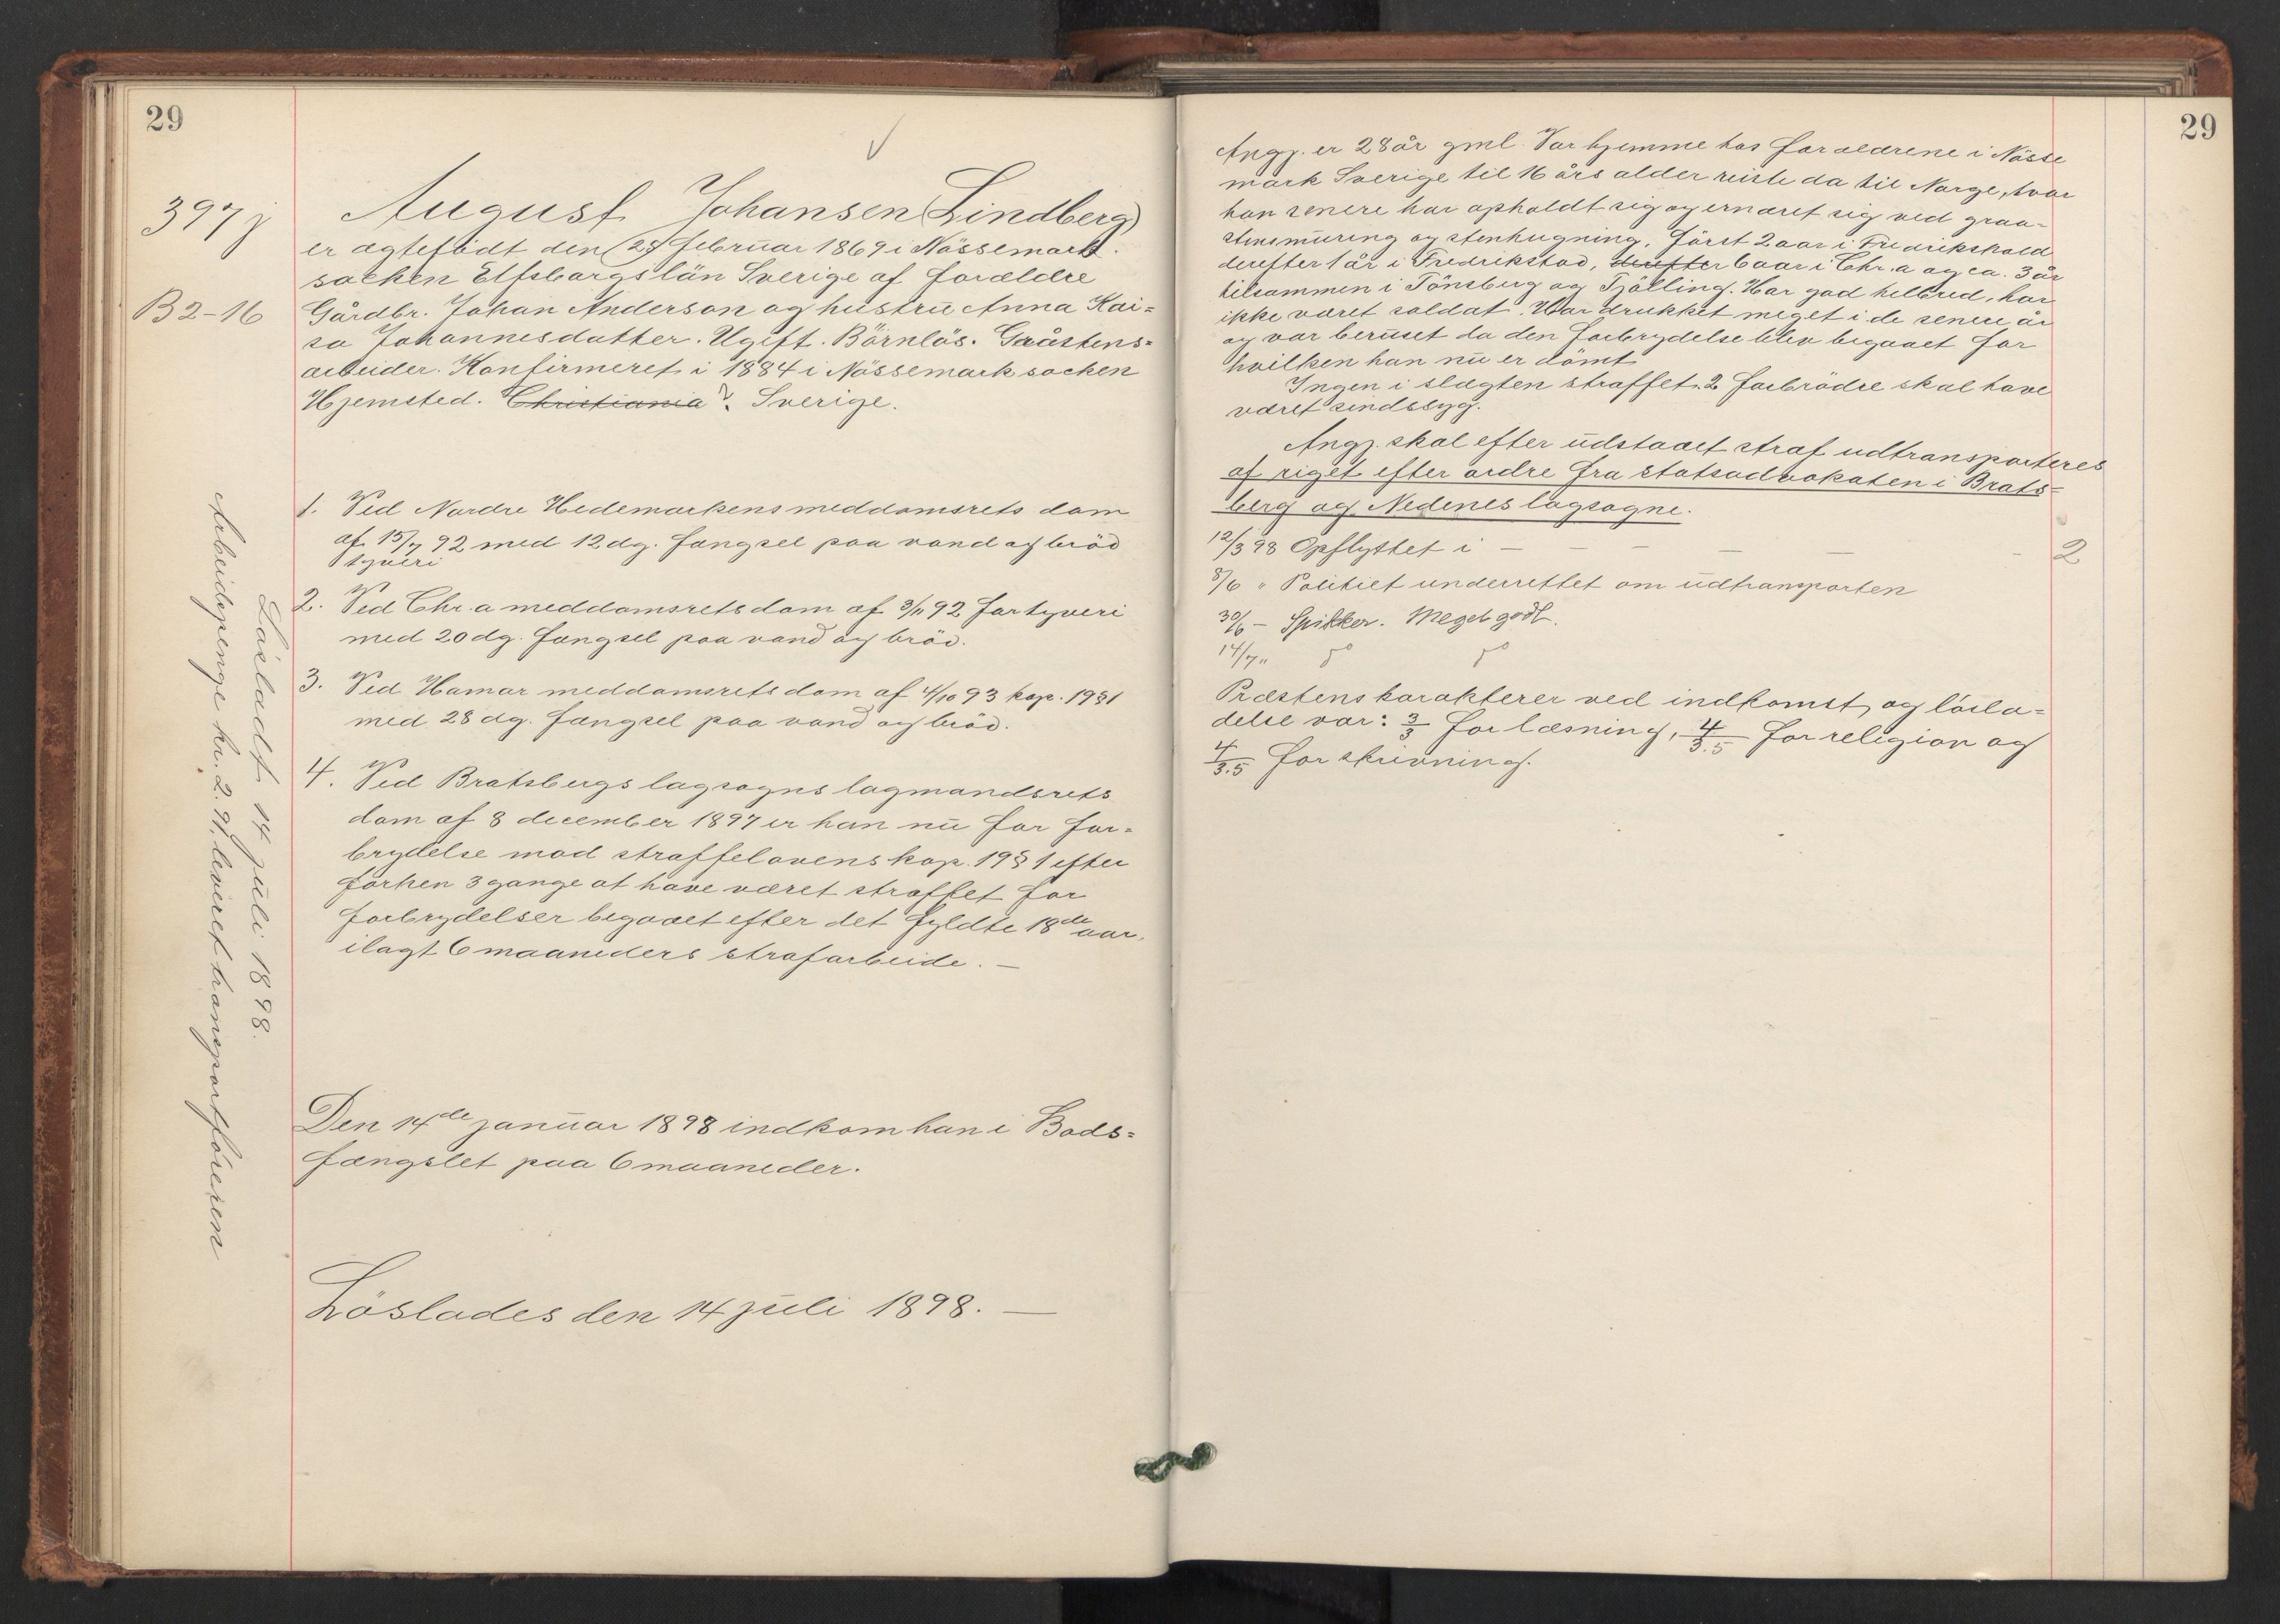 29
397 j
B2-16
August Johansen (Lindberg)
er ægtefödt den 24 februar 1869 i Nössemark
socken Elfsborgs län Sverige af forældre
Gårdbr. Johan Anderson og hustru Anna Kai=
sa Johannesdatter. Ugift. Börnlös. Gråstens=
arbeider. Konfirmeret i 1884 i Nössemark socken
Hjemsted. Christiania? Sverige.
1. Ved Nordre Hedemarkens meddomsrets dom
af 15/7 92 med 12 dg. fængsel paa vand og bröd
tyveri
2. Ved Chr.a meddomsrets dom af 3/11 92 for tyveri
med 20 dg. fængsel paa vand og bröd.
3. Ved Hamar meddomsrets dom af 4/10 93 kap. 19 § 1
med 28 dg. fængsel paa vand og bröd.
4. Ved Bratsbergs lagsogns lagmandsrets
dom af 8 december 1897 er han nu for for=
brydelse mod straffelovens kap. 19 § 1 efter
förhen 3 gange at have været straffet for
forbrydelser begaaet efter det fyldte 18de aar.
ilagt 6 maaneders strafarbeide. —
Den 14de januar 1898 indkom han i Bods=
fængslet paa 6 maaneder.
Löslades den 14 juli 1898. —
Lösladt 14 juli 1898.
Arbeidspenge kr. 2.91 leveret transportföreren
29
Angj. er 28 år gml. Var hjemme hos foraeldrene i Nösse
mark Sverige til 16 års alder reiste da til Norge, hvor
han senere har opholdt sig og ernæret sig ved graa=
stensmuring og stenhugning, först 2 aar i Fredrikshald
derefter 1 år i Fredrikstad, derefter 6 aar i Chr.a og ca. 3 år
tilsammen i Tönsberg og Tjölling. Har god helbred, har
ikke været soldat. Har drukket meget i de senere år
og var beruset da den forbrydelse blev begaaet for
hvilken han nu er dömt
Ingen i slægten straffet. 2 farbrödre skal have
været sindssyg.
Angj. skal efter udstaaet straf udtransporteres
af riget efter ordre fra statsadvokaten i Brats=
berg og Nedenes lagsogne.
12/3 98 Opflyttet i — — — — — - 2
8/6 " Politiet underrettet om udtransporten
30/6 - Spikker. Meget godt.
14/7 " do do
Præstens karakterer ved indkomst og lösla=
delse var: 3/3 for læsning, 4/3.5 for religion og
4/3.5 for skrivning.